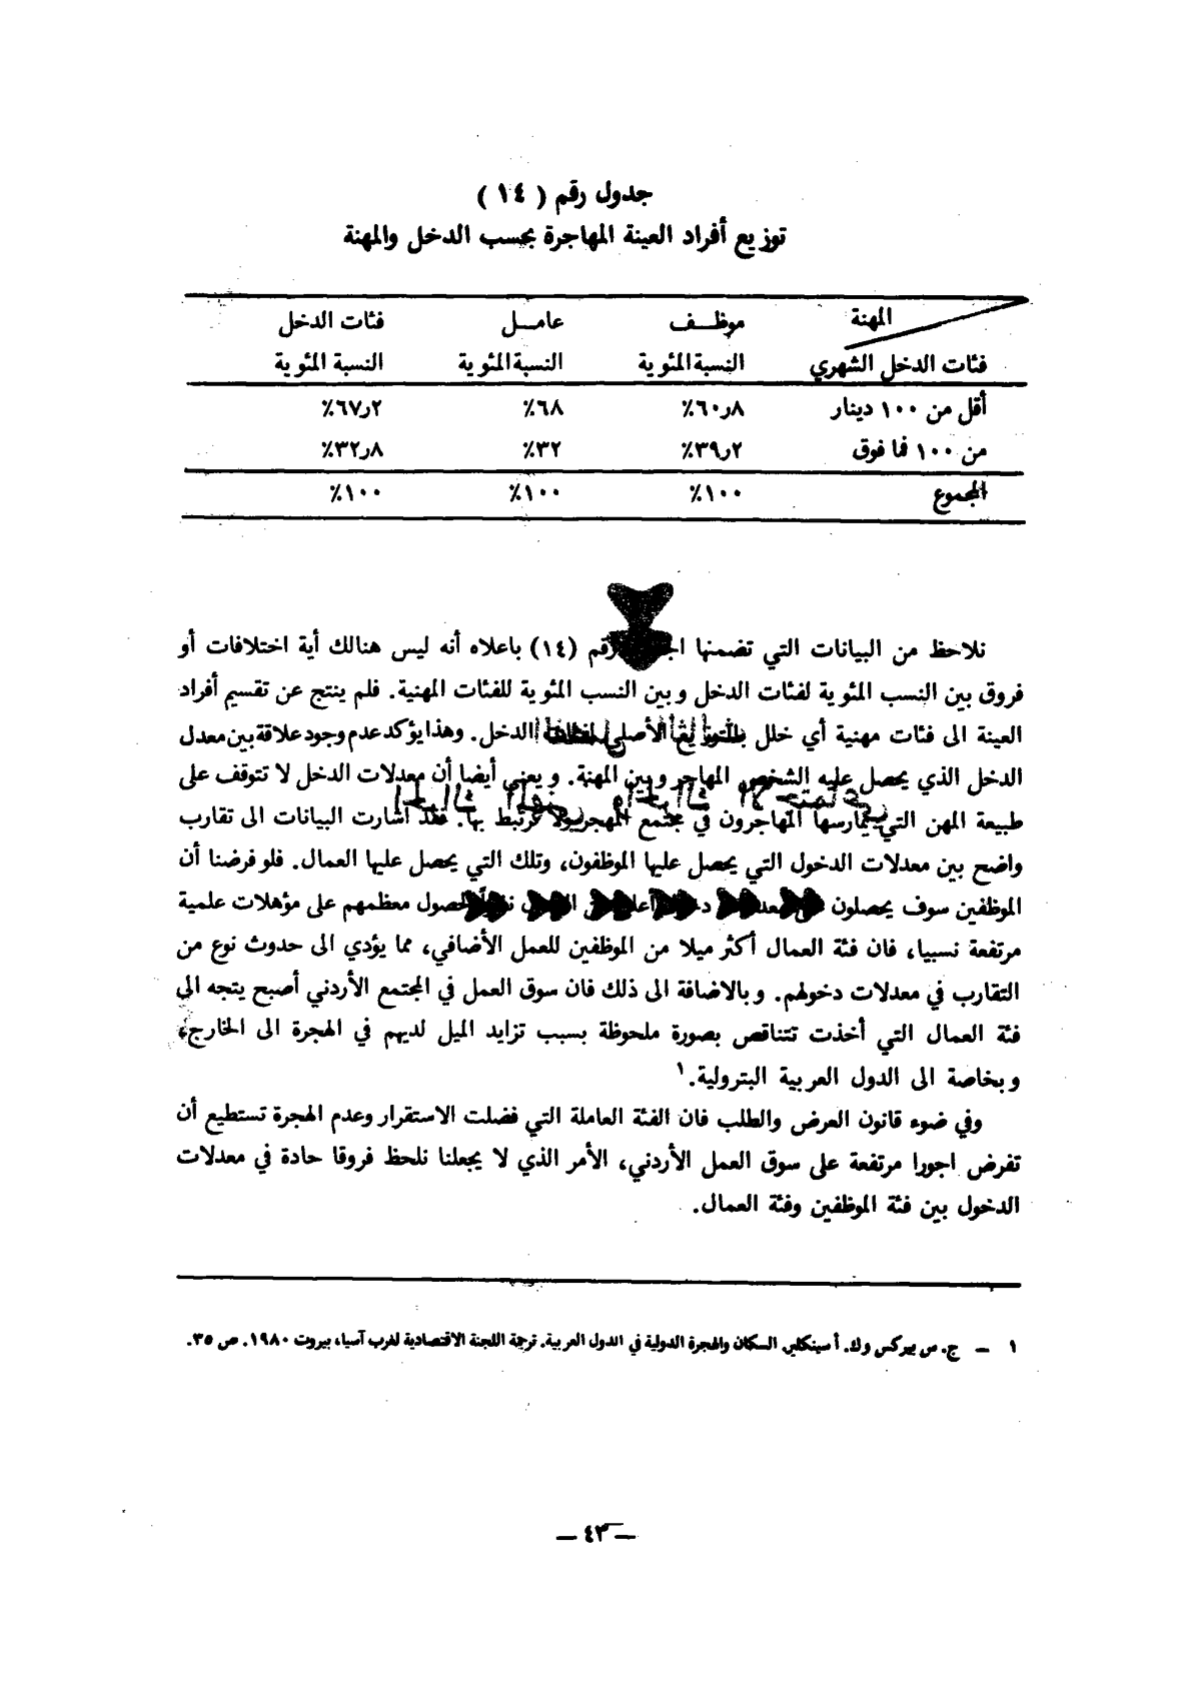 جدول رقم ( ١٤ )
توزيع أفراد العينة المهاجرة بحسب الدخل والمهنة
المهنة موظــف عامــل فئات الدخل
فئات الدخل الشهري النسبة المئوية النسبة المئوية النسبة المئوية
أقل من ١٠٠ دينار ٦٠٫٨٪ ٦٨٪ ٦٧٫٢٪
من ١٠٠ فما فوق ٣٩٫٢٪ ٣٢٪ ٣٢٫٨٪
المجموع ١٠٠٪ ١٠٠٪ ١٠٠٪
نلاحظ من البيانات التي تضمنها رقم (١٤) باعلاه أنه ليس هنالك أية اختلافات أو
فروق بين النسب المئوية لفئات الدخل وبين النسب المئوية للفئات المهنية. فلم ينتج عن تقسيم أفراد
العينة الى فئات مهنية أي خلل الأصلي الدخل. وهذا يؤكد عدم وجود علاقة بين معدل
الدخل الذي يحصل عليه الشخص المهاجر وبين المهنة. ويعني أيضا أن معدلات الدخل لا تتوقف على
طبيعة المهن التي يمارسها المهاجرون في مجتمع المهجر ولا ترتبط بها. فقد اشارت البيانات الى تقارب
واضح بين معدلات الدخول التي يحصل عليها الموظفون، وتلك التي يحصل عليها العمال. فلو فرضنا أن
الموظفين سوف يحصلون لحصول معظمهم على مؤهلات علمية
مرتفعة نسبيا، فان فئة العمال أكثر ميلا من الموظفين للعمل الأضافي، مما يؤدي الى حدوث نوع من
التقارب في معدلات دخولهم. وبالاضافة الى ذلك فان سوق العمل في المجتمع الأردني أصبح يتجه الى
فئة العمال التي أخذت تتناقص بصورة ملحوظة بسبب تزايد الميل لديهم في الهجرة الى الخارج،
وبخاصة الى الدول العربية البترولية.١
وفي ضوء قانون العرض والطلب فان الفئة العاملة التي فضلت الاستقرار وعدم الهجرة تستطيع أن
تفرض اجورا مرتفعة على سوق العمل الأردني، الأمر الذي لا يجعلنا نلحظ فروقا حادة في معدلات
الدخول بين فئة الموظفين وفئة العمال.
١ – ج. س بيركس وك. أ سينكلير. السكان والهجرة الدولية في الدول العربية. ترجمة اللجنة الاقتصادية لغرب آسيا، بيروت ١٩٨٠. ص ٣٥.
– ٤٣ –